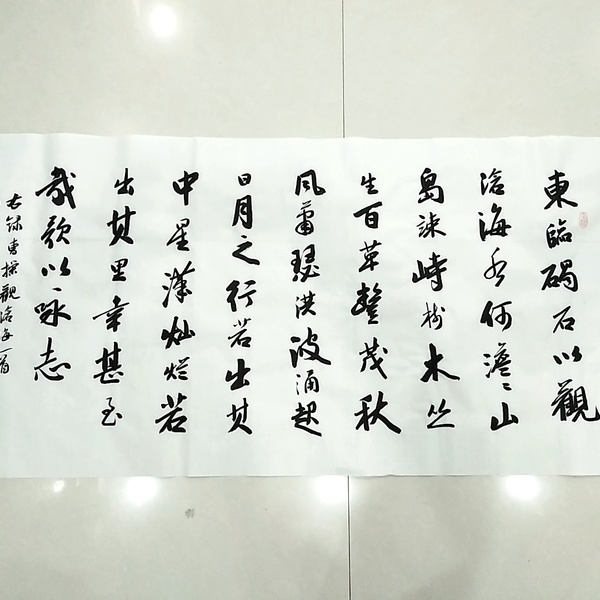 東臨碣石以觀
滄海水何澹〻山
島竦峙樹木丛
生百草豐茂秋
风蕭瑟洪波涌起
日月之行若出其
中星漢灿烂若
出其里幸甚至
哉歌以咏志
右録曹操觀滄海一首